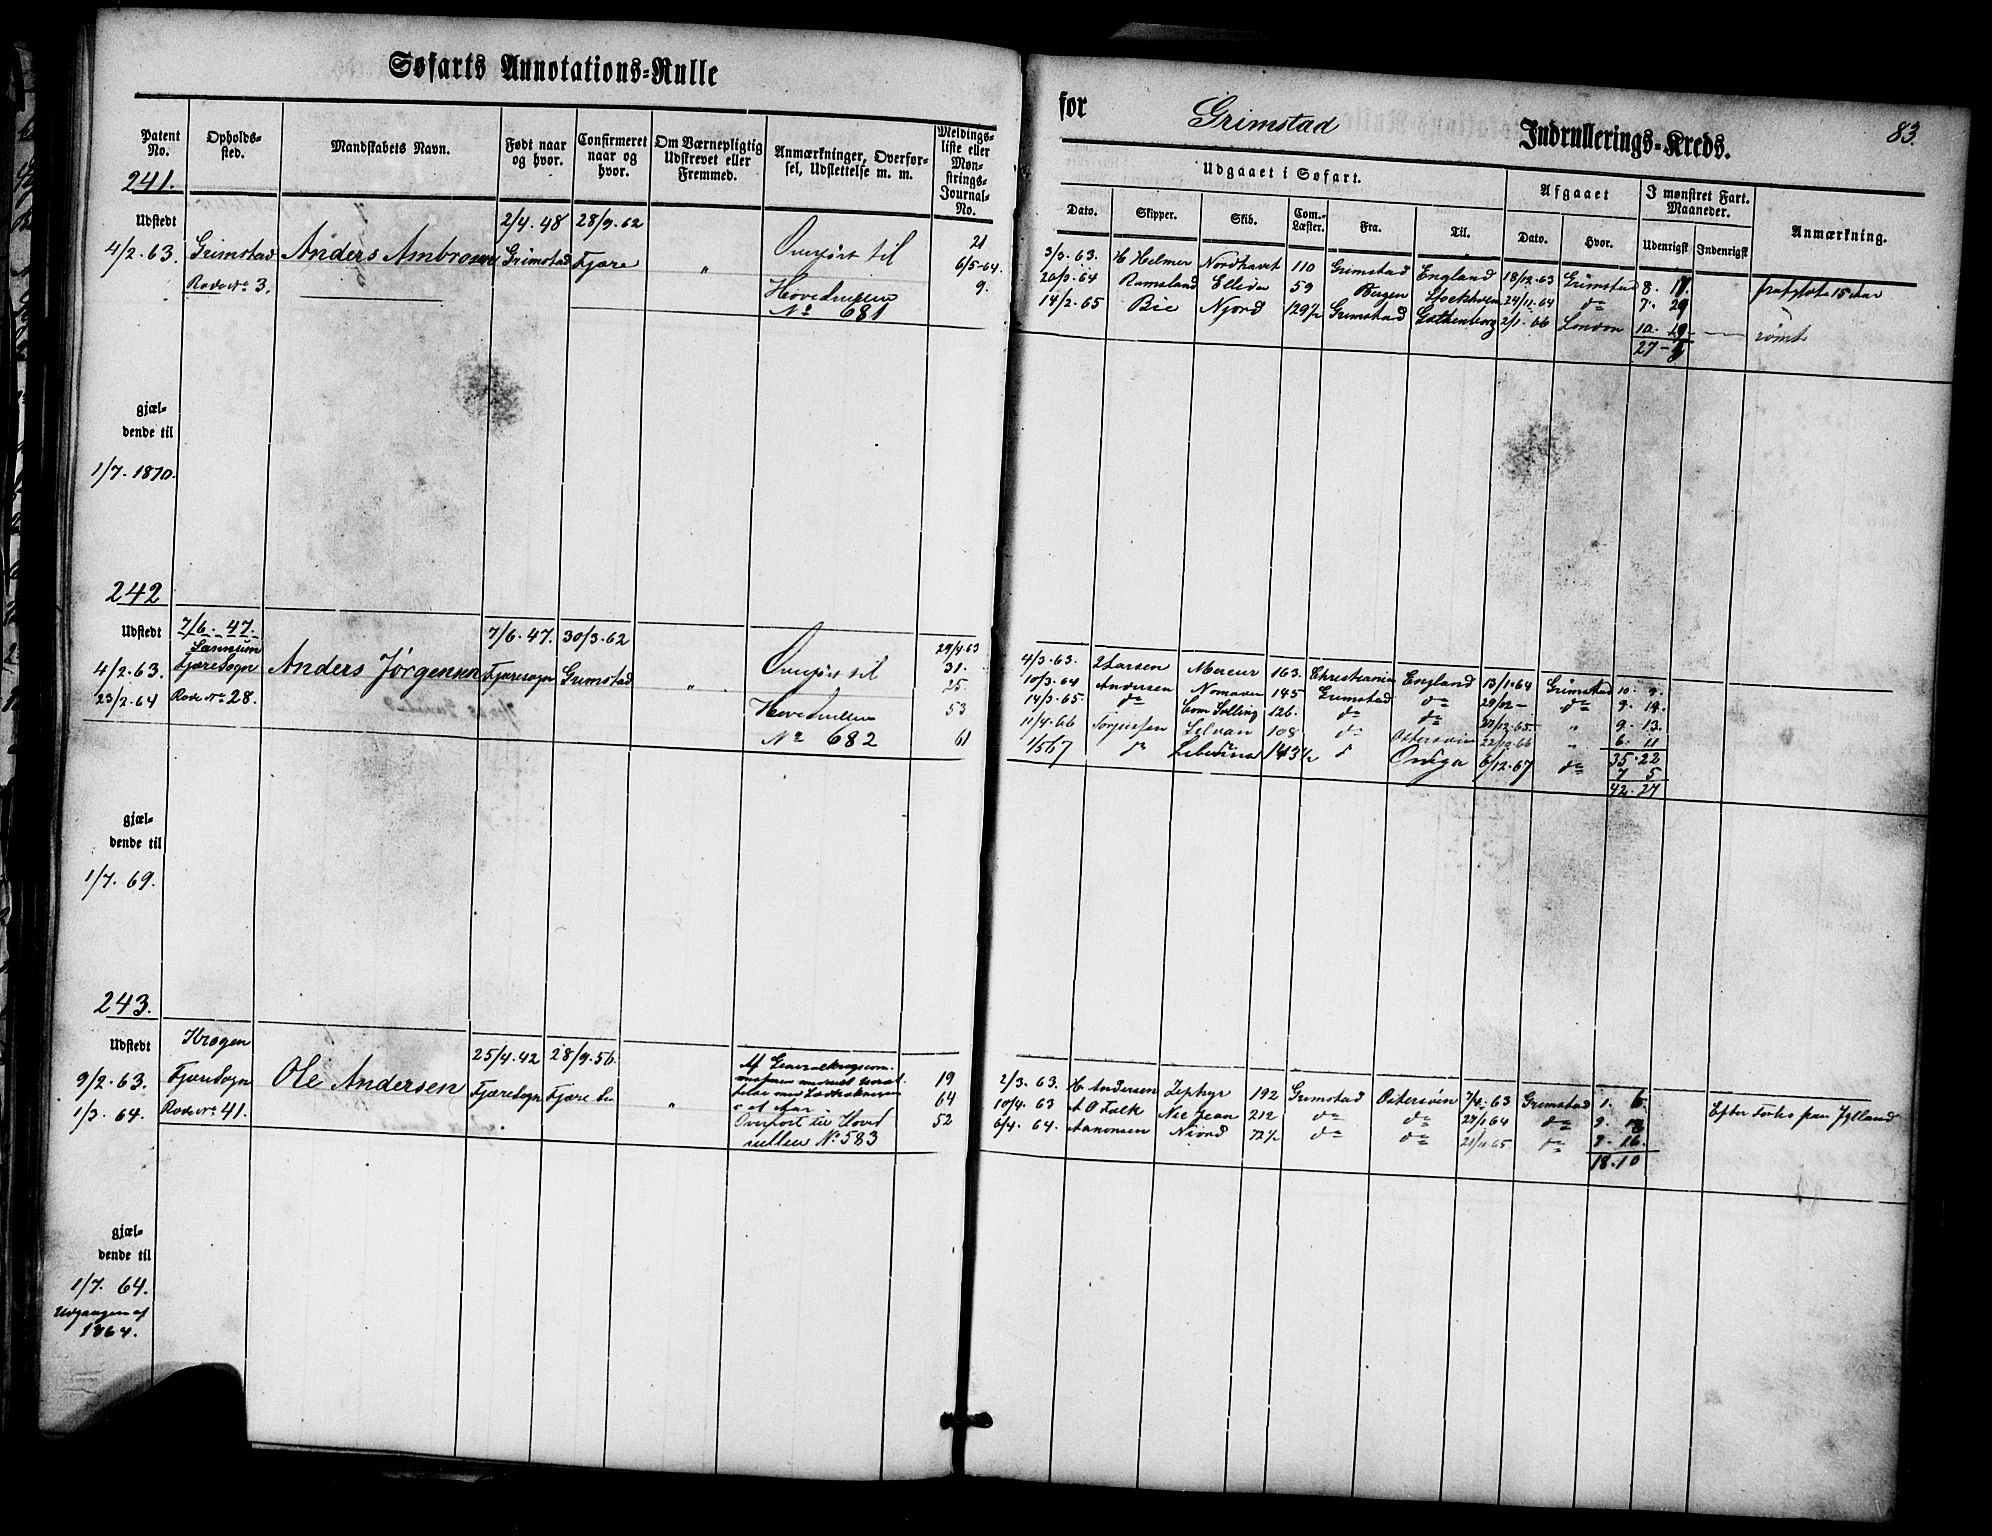 Søfarts Annotations=Rulle
Patent No.
Opholds=sted.
Mandskabets Navn.
Født naar og hvor.
Confirmeret naar og hvor.
Om Værnepligtig Udskrevet eller Fremmed.
Anmærkninger, Overfør=sel, Udslettelse m. m.
Meldings=liste eller Møn=strings=Journal=No.
241.
Udstedt
4/2.63.
Grimstad
Rode No 3.
Anders Ambrosen
2/4.48
Grimstad
28/9.62
Fjære
"
Overført til
Hovedrullen
No 681
21
6/5-64.
9.
gjæl=
dende til
1/7.1870.
242
Udstedt
4/2.63.
23/2.64
7/6.47.
Fjæresogn
Rode No 28.
Anders Jørgensen
7/6.47.
Fjæresogn
30/3.62
Grimstad
"
Overført til
Hovedrullen
No 682
29/4.63
31.
25.
53
61
gjæl=
dende til
1/7.69.
243.
Udstedt
9/2.63.
1/3.64.
Krogen
Fjæresogn
Rode No 41.
Ole Andersen
25/4.42
Fjæresogn
28/9.56
Fjære
"
Overført til Hoved
rullen No 583
19
64
52
gjæl=
dende til
1/7.64.
Udgaaen af
1864.
for Grimstad Indrullerings=Kreds.
83.
Udgaaet i Søfart.
Afgaaet
I mønstret Fart. Maaneder.
Anmærkning.
Dato.
Skipper.
Skib.
Com.=Læster.
Fra.
Til.
Dato.
Hvor.
Udenrigst
Indenrigst
3/3.63. H Helmer Nordhavet 110 Grimstad England 18/12.63 Grimstad 8.
20/3.64 Ramsland Ellida 59 Bergen Stockholm 24/11.64 do 7.
14/2.65 Bie Njord 129½ Grimstad Gothenborg 2/1.66 London 10. 19 rømt
27-
4/3.63. Larsen Mercur 163. Christiania England 13/1.64 Grimstad 10. 9.
10/3.64 Andersen 145 Grimstad do 29/12- do 9. 19.
14/3.65 do Com Solling 126. do do 22/12.65- " 9. 13.
11/4.66 Jørgensen Selvan 108 do Østersøen 22/12.66 " 6. 11
35.22
1/5 67 do 143½ d Onega 6/12.67 do 7 5
42.27
2/3.63. H Andersen Zephyr 192 Grimstad Østersøen 7/4.63 Grimstad 1. 6. Efter Forlis paa Jylland
10/4.63 A O Falk Nic Jean 212 do do 27/1 64 do 9.
6/4.64. Aanonsen Niord 72½ do do 21/11 65 do 7. 16.
18.10